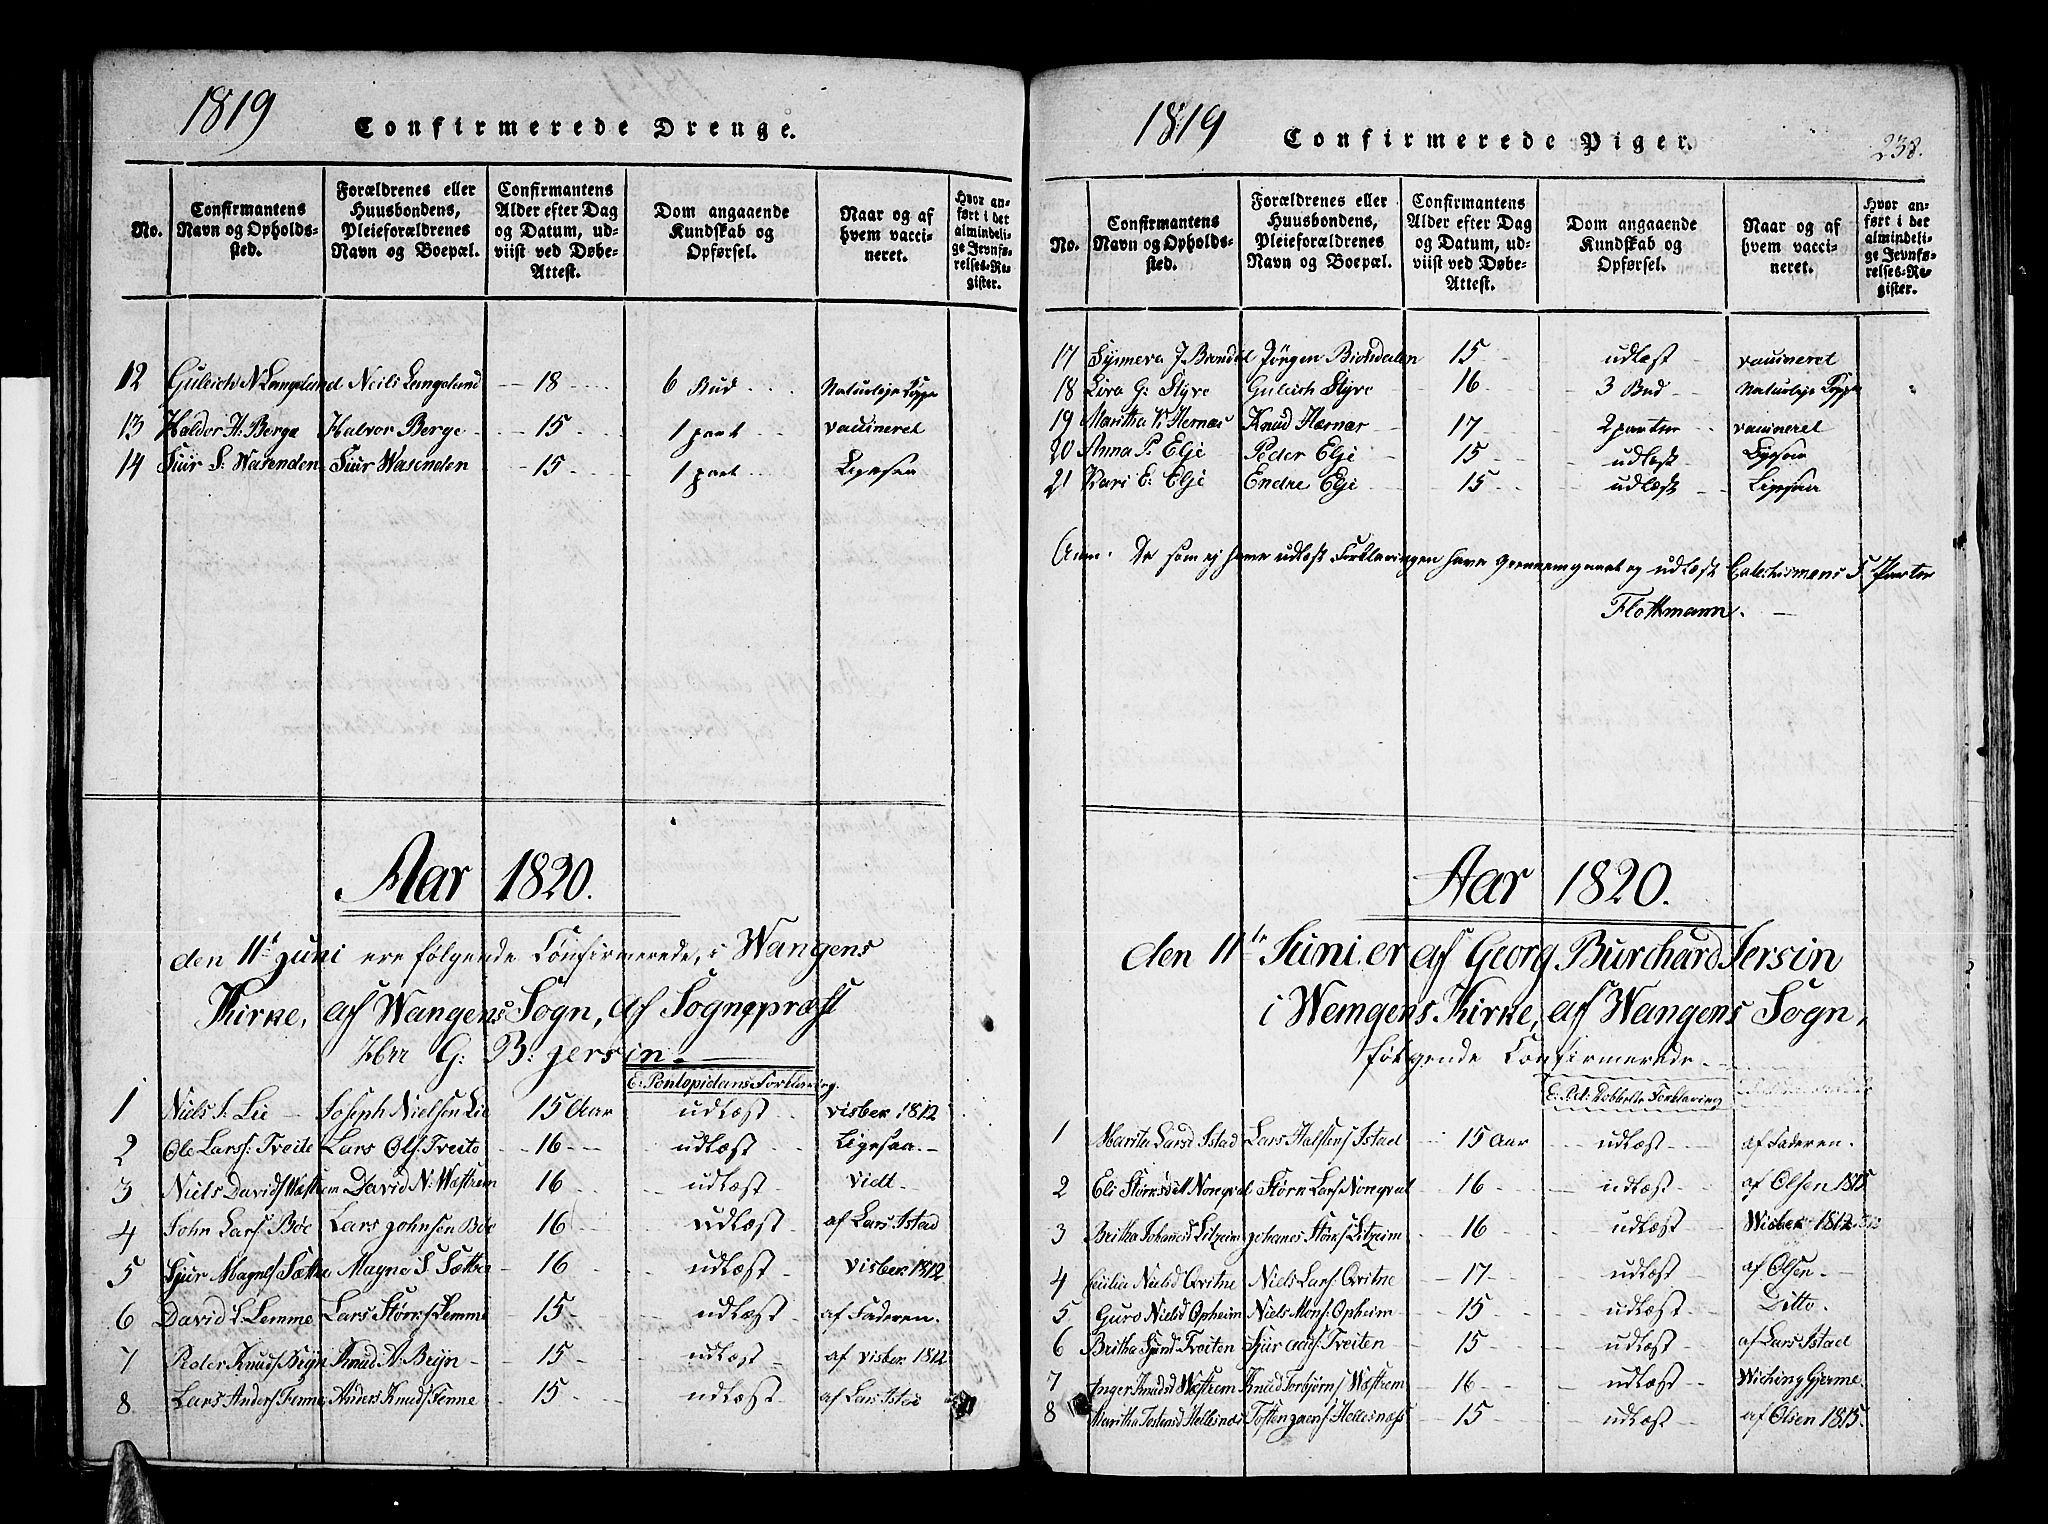 1819
Confirmerede Drenge.
No.
Confirmantens
Navn og Opholds-
sted.
Forældrenes eller
Huusbondens,
Pleieforældrenes
Navn og Boepæl.
Confirmantens
Alder efter Dag
og Datum, ud-
viist ved Døbe-
Attest.
Dom angaaende
Kundskab og
Opførsel.
Naar og af
hvem vacci-
neret.
Hvor an-
ført i det
almindeli-
ge Jevnfø-
relses-Re-
gister.
12 Guleich N Langeland Neils Langeland 18 6 Bud Naturlige Kopper
13 Haldor H. Berge Halvor Berge 15 1 part vaccineret
14 Siur S: Wasenden Siur Wasenden 15 1 part Ligesaa
Aar 1820.
den 11te Juni ere følgende Confirmerede, i Wangens
Kirke, af Wangens Sogn, af Sognepræst
Herr G: B: jersin.
E: Pontopidans Forklaring.
1 Niels J: Lie Joseph Nielsen Lie 15 Aar udlæst visber 1812
2 Ole Lars: Tveite Lars Ols: Tveito 16 udlæst Ligesaa
3 Niels Davids Wæstrem David N: Wæstrem 16 udlæst vidt
4 John Lars: Böe Lars johnsen Böe 16 udlæst af Lars Istad
5 Sjur Magnes Sætte Magne S Sætte 16 udlæst visber 1812
6 David L Lemme Lars Størs Lemme 15 udlæst af Faderen.
7 Peder Knuds Bryn Knud A: Bryn 15 udlæst af visber 1812
8 Lars Anders Finne Anders Knuds Finne 15 udlæst af Lars Istad
1819
Confirmerede Piger.
238.
No.
Confirmantens
Navn og Opholds-
sted.
Forældrenes eller
Huusbondens,
Pleieforældrenes
Navn og Boepæl.
Confirmantens
Alder efter Dag
og Datum, ud-
viist ved Døbe-
Attest.
Dom angaaende
Kundskab og
Opførsel.
Naar og af
hvem vacci-
neret.
Hvor an-
ført i det
almindeli-
ge Jevnfø-
relses-Re-
gister.
17 Synneva J. Jörgen 15 udlæst vaccineret
18 G: Styve Guleich Styve 16 3 Bud Naturlige Kopper
19 Maritha K Hernæs Knud Hærnæs 17 2 parter vaccineret
20 Anna P. Elje Peder Elje 15 udlæst Ligesaa
21 Kari E: Elje Endre Elje 15 udlæst Ligesaa
Anm: De som ej have udlæst Forklaringen have gjennemgaaet og udlæst Catechismens 5 Parter
Flottmann.
Aar 1820.
den 11te Juni er af Georg Burchard Jersin
i Wangens Kirke, af Wangens Sogn,
følgende Confirmerede
E: P: Dobbelte Forklaring
1 Marita Larsd Istad Lars Halstens Istad 15 Aar udlæst af Faderen.
2 Eli Størnsdtt Nonqval Størn Lars Nonqval 16 udlæst af Olsen 1815
3 Britha Johannesd Litzeim johanes Størns Litzeim 16 udlæst Wisber 1812
4 Cecilia Nielsd Qvitne Niels Lars Qvitne 17 udlæst af Olsen
5 Guro Nielsd Opheim Niels Mons: Opheim 15 udlæst Ditto.
6 Britha Sjursd Tveiten Sjur Tveiten 15 udlæst af Lars Istad
7 Inger Knudsd Wæstrem Knud Torbjørns Wæstrem 16 udlæst Wiching Gjerme
8 Maritha Tostensd Hellesnæs Tosten Hellesnæss 15 udlæst af Olsen 1815.